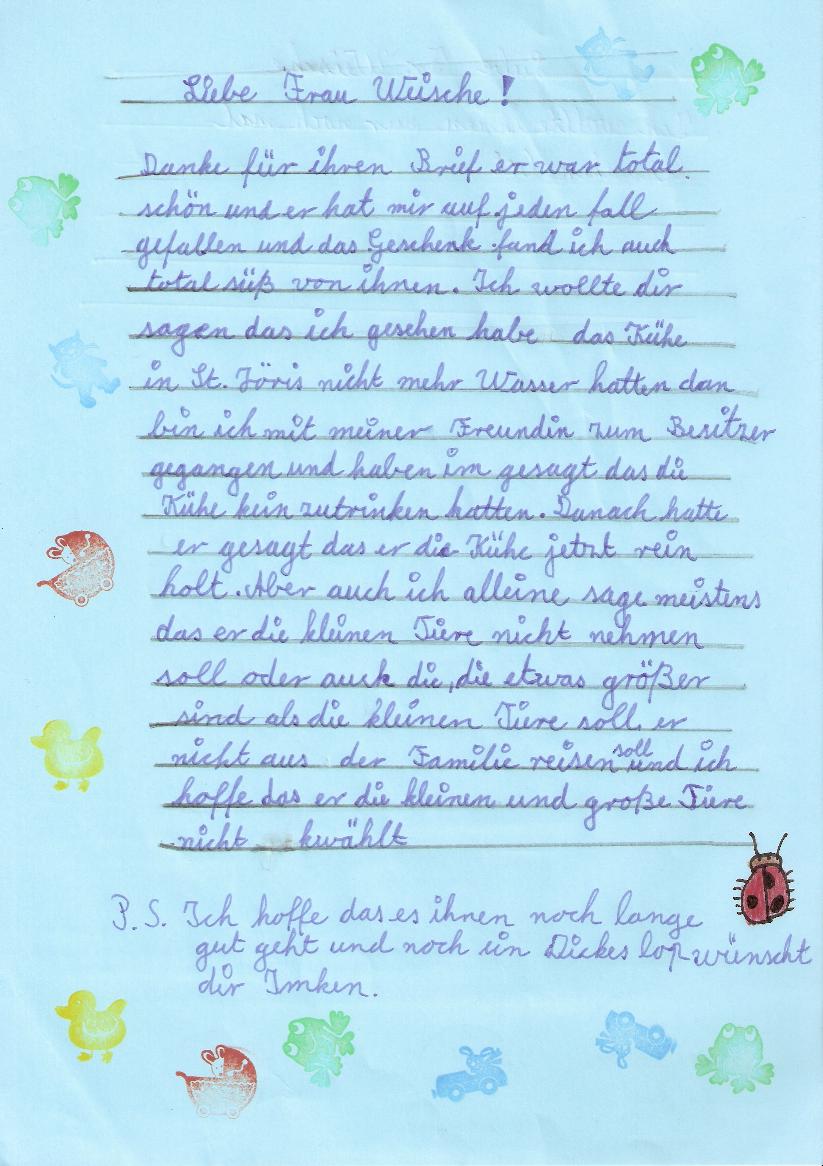 Liebe Frau Weische!
Danke für ihren Brief er war total
schön und er hat mir auf jeden fall
gefallen und das Geschenk fand ich auch
total süß von ihnen. Ich wollte dir
sagen das ich gesehen habe das Kühe
in St. Jöris nicht mehr Wasser hatten dan
bin ich mit meiner Freundin zum Besitzer
gegangen und haben im gesagt das die
Kühe kein zutrinken hatten. Danach hatte
er gesagt das er die Kühe jetzt rein
holt. Aber auch ich alleine sage meistens
das er die kleinen Tiere nicht nehmen
soll oder auch die, die etwas größer
sind als die kleinen Tiere soll er
nicht aus der Familie reisen soll und ich
hoffe das er die kleinen und große Tiere
nicht kwählt
P.S. Ich hoffe das es ihnen noch lange
gut geht und noch ein Dickes lop wünscht
dir Imken.